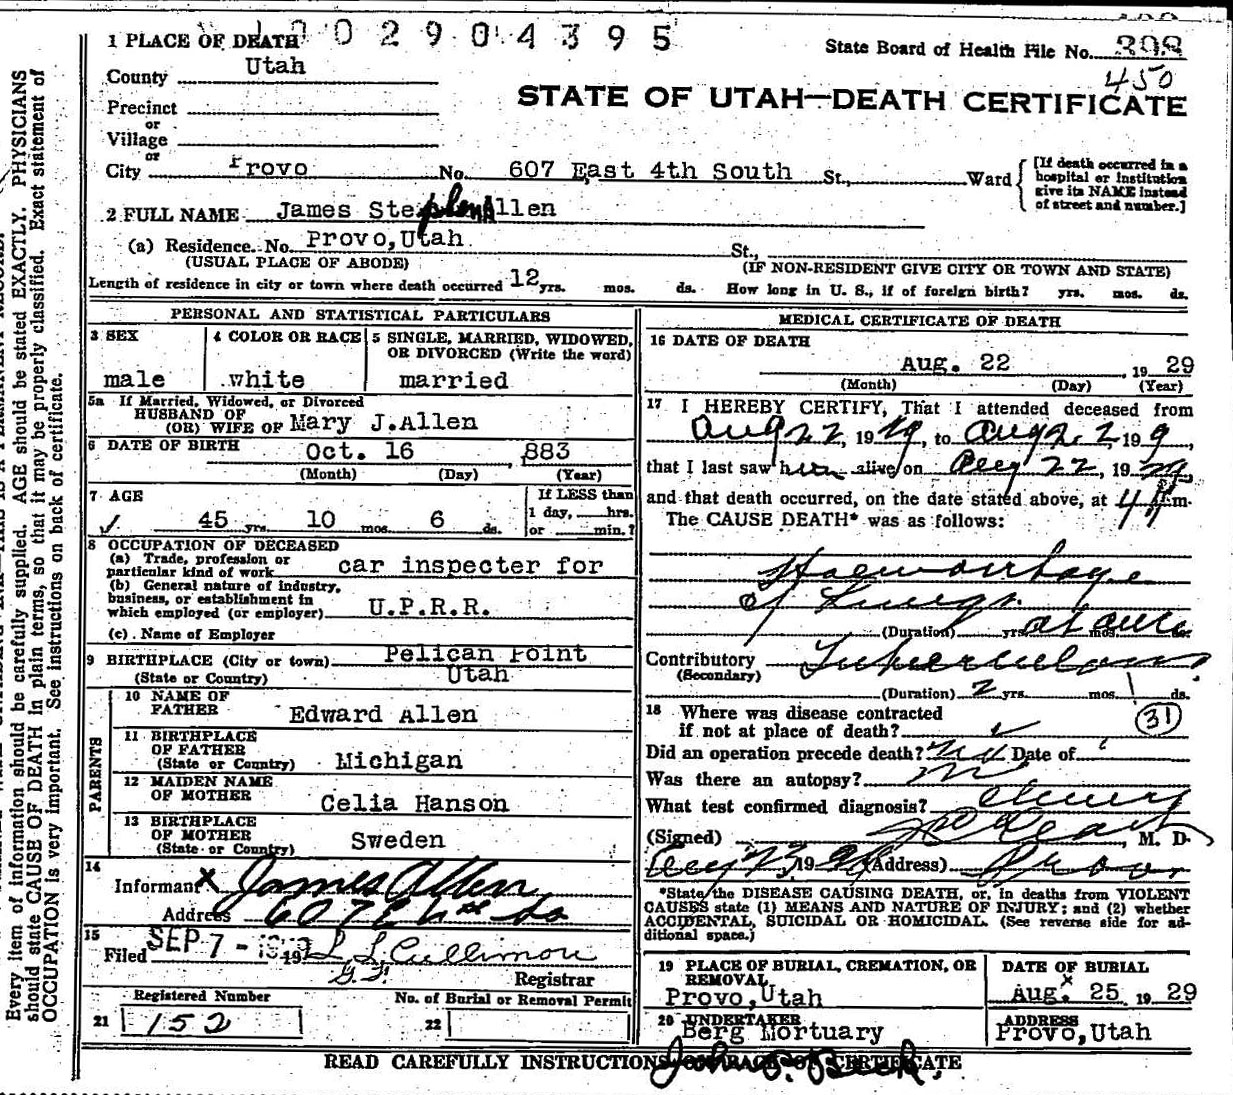 1 PLACE OF DEATH 0 0 2 9 0 4 3 9 5
State Board of Health File No. 398
450
County Utah
STATE OF UTAH—DEATH CERTIFICATE
Precinct
or
Village
or
City Provo No. 607 East 4th South St., Ward
[If death occurred in a
hospital or institution
give its NAME instead
of street and number.]
2 FULL NAME James Stephen Allen
(a) Residence. No. Provo, Utah St.,
(USUAL PLACE OF ABODE) (IF NON-RESIDENT GIVE CITY OR TOWN AND STATE)
Length of residence in city or town where death occurred 12 yrs. mos. ds. How long in U. S., if of foreign birth? yrs. mos. ds.
PERSONAL AND STATISTICAL PARTICULARS
3 SEX
male
4 COLOR OR RACE
white
5 SINGLE, MARRIED, WIDOWED,
OR DIVORCED (Write the word)
married
5a If Married, Widowed, or Divorced
HUSBAND OF
(OR) WIFE OF Mary J. Allen
6 DATE OF BIRTH Oct. 16 , 883
(Month) (Day) (Year)
7 AGE
45 yrs. 10 mos. 6 ds.
If LESS than
1 day, hrs.
or min.?
8 OCCUPATION OF DECEASED
(a) Trade, profession or
particular kind of work car inspecter for
(b) General nature of industry,
business, or establishment in
which employed (or employer) U.P.R.R.
(c) Name of Employer
9 BIRTHPLACE (City or town) Pelican Point
(State or Country) Utah
PARENTS
10 NAME OF
FATHER Edward Allen
11 BIRTHPLACE
OF FATHER
(State or Country) Michigan
12 MAIDEN NAME
OF MOTHER Celia Hanson
13 BIRTHPLACE
OF MOTHER
(State or Country) Sweden
14
Informant X James Allen
Address 607 E 4th So
15
Filed SEP 7 - 1929 19 L L Cullimore
Registrar
Registered Number
21 152
No. of Burial or Removal Permit
22
MEDICAL CERTIFICATE OF DEATH
16 DATE OF DEATH
Aug. 22 , 19 29
(Month) (Day) (Year)
17 I HEREBY CERTIFY, That I attended deceased from
Aug 22, 1929, to Aug 22 19 9,
that I last saw him alive on Aug 22, 1929,
and that death occurred, on the date stated above, at 4 P m.
The CAUSE DEATH* was as follows:
Haemorrhage
of Lungs.
(Duration) yrs. mos. ds.
Contributory Tuberculosis
(Secondary)
(Duration) 2 yrs. mos. ds.
18 Where was disease contracted
if not at place of death? (31)
Did an operation precede death? no Date of
Was there an autopsy? no
What test confirmed diagnosis?
(Signed) , M. D.
Aug 23, 1929 (Address) Provo
*State the DISEASE CAUSING DEATH, or, in deaths from VIOLENT
CAUSES state (1) MEANS AND NATURE OF INJURY; and (2) whether
ACCIDENTAL, SUICIDAL OR HOMICIDAL. (See reverse side for ad-
ditional space.)
19 PLACE OF BURIAL, CREMATION, OR
REMOVAL
Provo, Utah
DATE OF BURIAL
Aug. 25 19 29
20 UNDERTAKER
Berg Mortuary
ADDRESS
Provo, Utah
READ CAREFULLY INSTRUCTIONS ON BACK OF CERTIFICATE
Every item of information should be carefully supplied. AGE should be stated EXACTLY. PHYSICIANS
should state CAUSE OF DEATH in plain terms, so that it may be properly classified. Exact statement of
OCCUPATION is very important. See instructions on back of certificate.